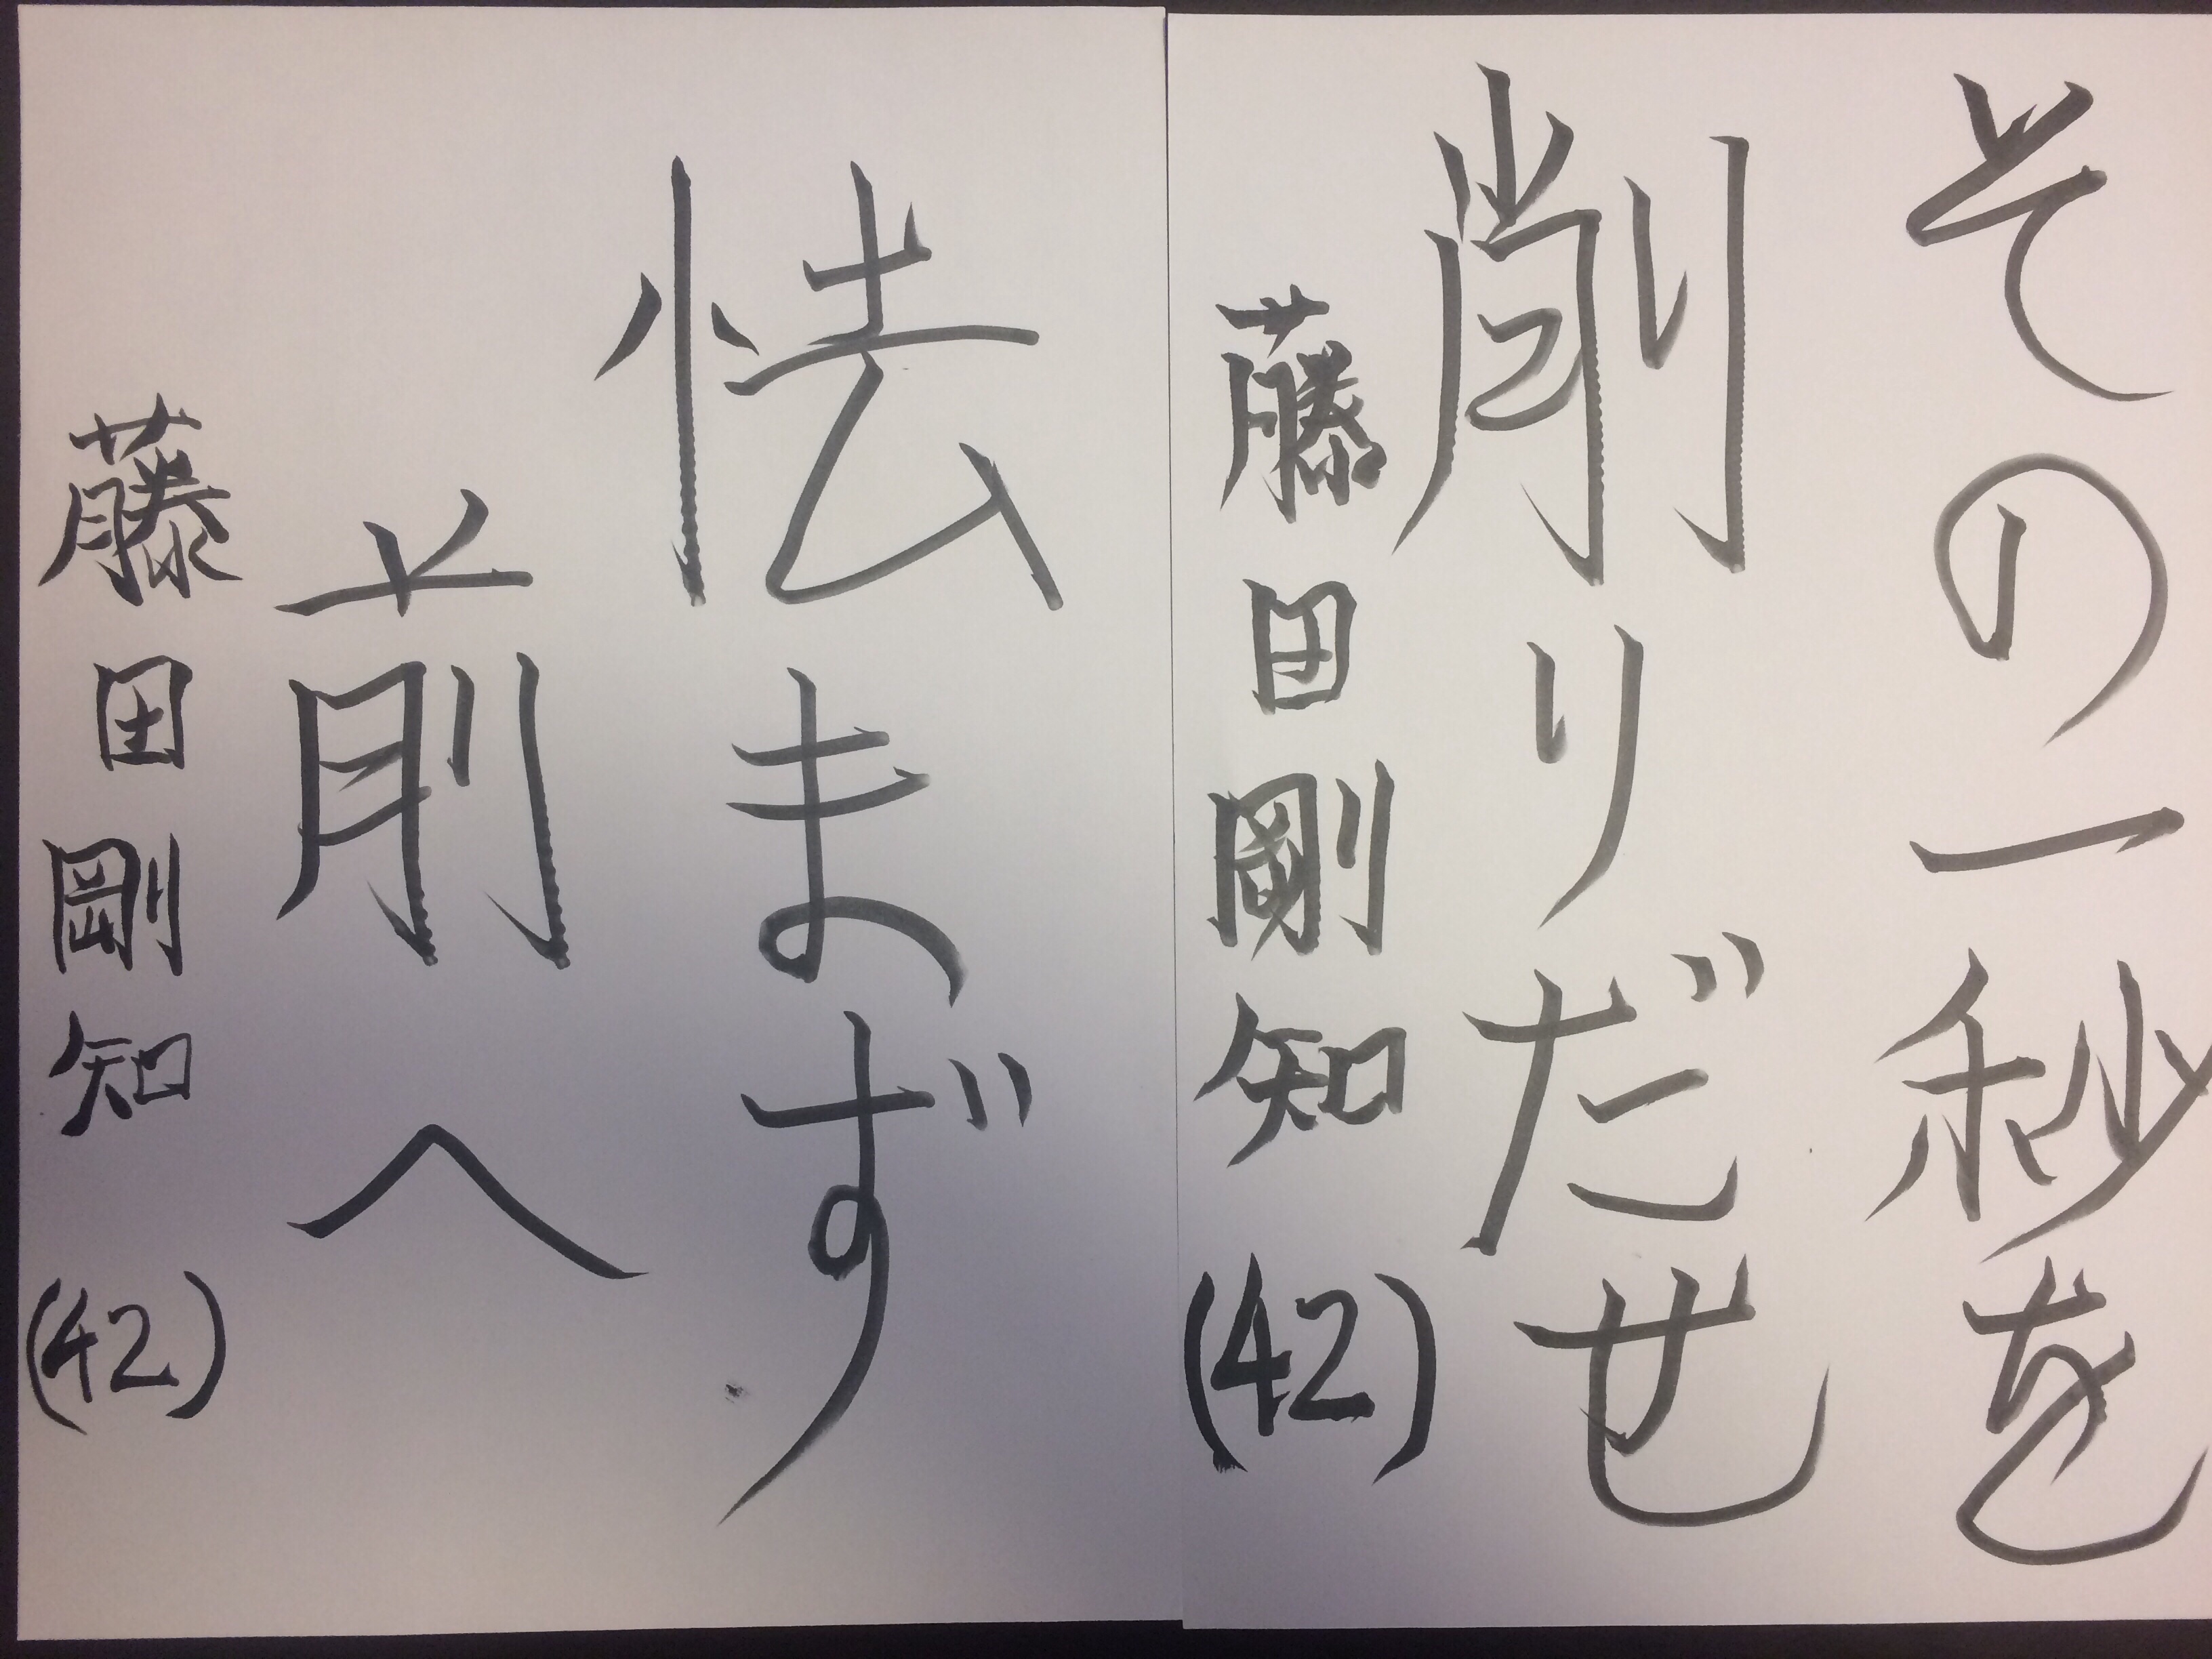 その一秒を
削りだせ
藤田剛知
(42)
怯まず
前へ
藤田剛知
(42)